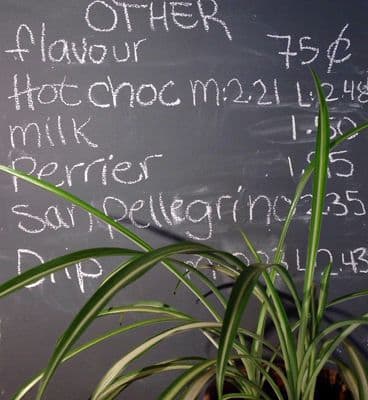 OTHER
flavour 75¢
Hot choc m2.21 L2.48
milk 1.50
Perrier
san pellegrino 2.35
Drip L 2.43